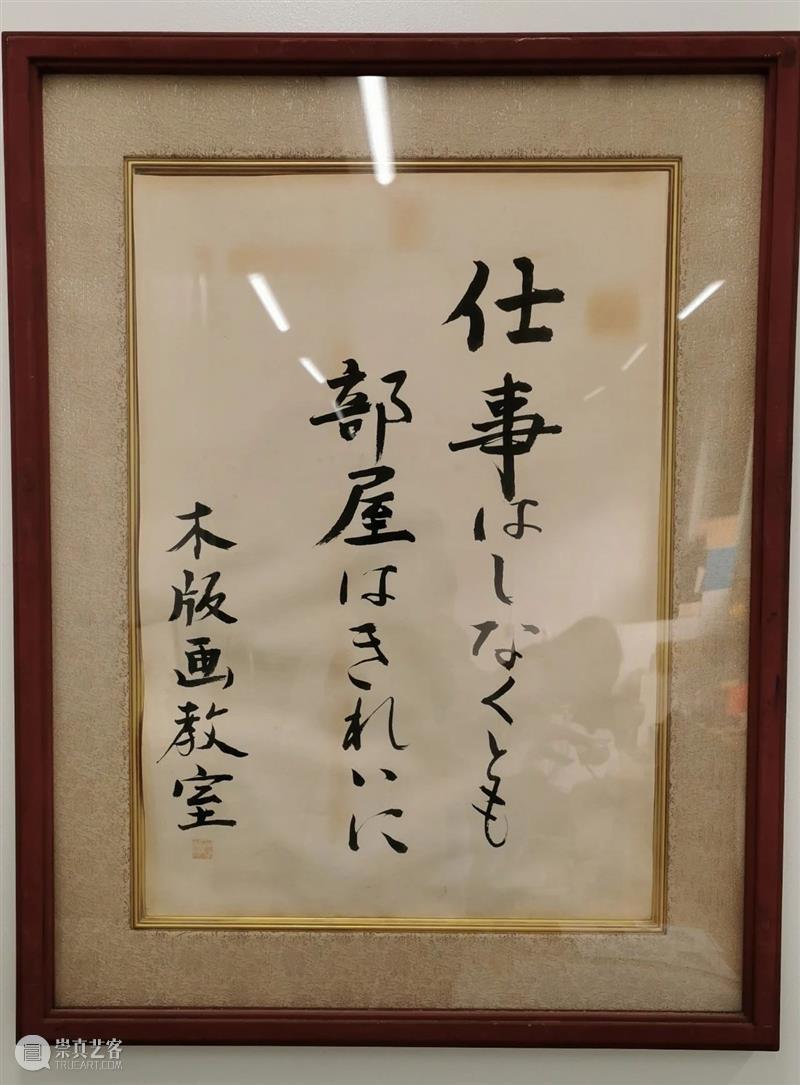 仕事はしなくとも
部屋はきれいに
木版画教室
崇真艺客
TRUCART.COM